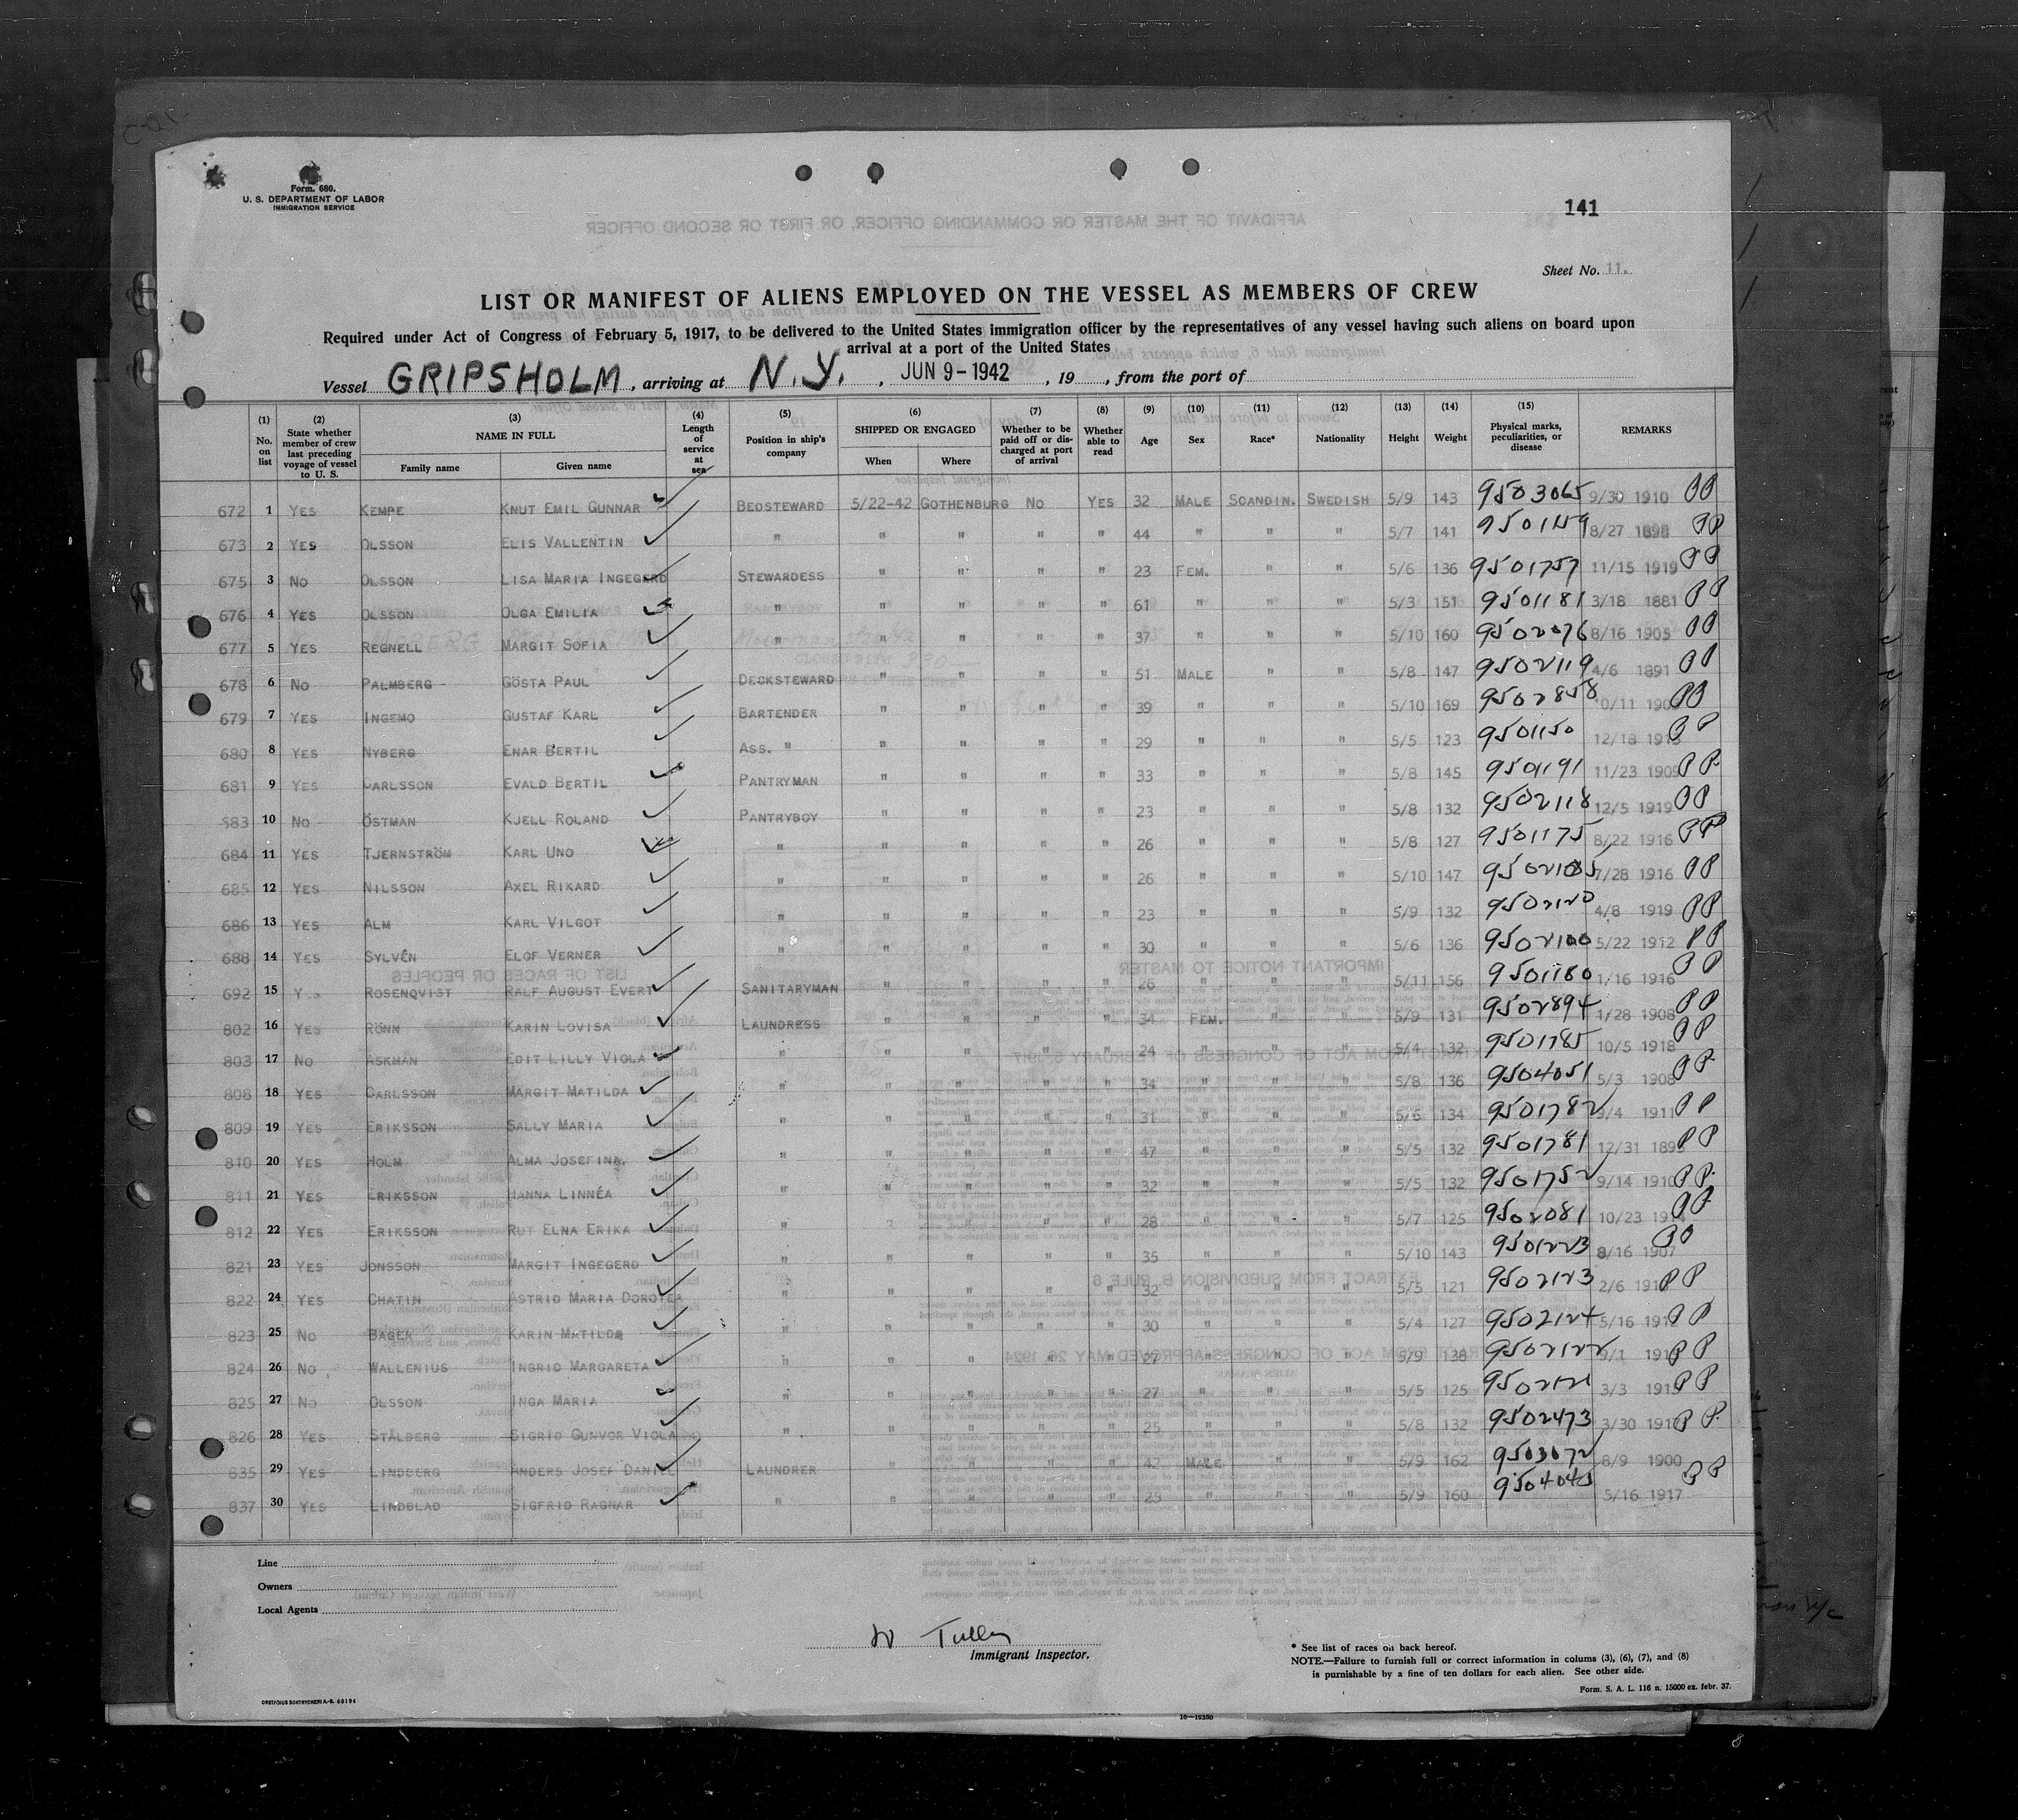 Form. 680.
U. S. DEPARTMENT OF LABOR
IMMIGRATION SERVICE
141
Sheet No. 11.
LIST OR MANIFEST OF ALIENS EMPLOYED ON THE VESSEL AS MEMBERS OF CREW
Required under Act of Congress of February 5, 1917, to be delivered to the United States immigration officer by the representatives of any vessel having such aliens on board upon
arrival at a port of the United States
Vessel GRIPSHOLM, arriving at N.Y., JUN 9-1942, 19, from the port of
(1) No. on list (2) State whether member of crew last preceding voyage of vessel to U. S. (3) NAME IN FULL Family name Given name (4) Length of service at sea (5) Position in ship's company (6) SHIPPED OR ENGAGED When Where (7) Whether to be paid off or discharged at port of arrival (8) Whether able to read (9) Age (10) Sex (11) Race* (12) Nationality (13) Height (14) Weight (15) Physical marks, peculiarities, or disease REMARKS
672 1 YES KEMPE KNUT EMIL GUNNAR BEDSTEWARD 5/22-42 GOTHENBURG NO YES 32 MALE SCANDIN. SWEDISH 5/9 143 9503065 9/30 1910 PP
673 2 YES OLSSON ELIS VALLENTIN " " " " " 44 " " " 5/7 141 9501159 8/27 1898 PP
675 3 NO OLSSON LISA MARIA INGEGERD STEWARDESS " " " " 23 FEM. " " 5/6 136 9501757 11/15 1919 PP
676 4 YES OLSSON OLGA EMILIA " " " " " 61 " " " 5/3 151 9501181 3/18 1881 PP
677 5 YES REGNELL MARGIT SOFIA " " " " " 37 " " " 5/10 160 9502076 8/16 1905 PP
678 6 NO PALMBERG GÖSTA PAUL DECKSTEWARD " " " " 51 MALE " " 5/8 147 9502119 4/6 1891 PP
679 7 YES INGEMO GUSTAF KARL BARTENDER " " " " 39 " " " 5/10 169 9502858 10/11 PP
680 8 YES NYBERG ENAR BERTIL ASS. " " " " " 29 " " " 5/5 123 9501150 12/18 PP
681 9 YES CARLSSON EVALD BERTIL PANTRYMAN " " " " 33 " " " 5/8 145 9501191 11/23 1909 PP
683 10 NO ÖSTMAN KJELL ROLAND PANTRYBOY " " " " 23 " " " 5/8 132 9502118 12/5 1919 PP
684 11 YES TJERNSTRÖM KARL UNO " " " " " 26 " " " 5/8 127 9501175 8/22 1916 PP
685 12 YES NILSSON AXEL RIKARD " " " " " 26 " " " 5/10 147 9502105 7/28 1916 PP
686 13 YES ALM KARL VILGOT " " " " " 23 " " " 5/9 132 9502120 4/8 1919 PP
688 14 YES SYLVÉN ELOF VERNER " " " " " 30 " " " 5/6 136 9502100 5/22 1912 PP
692 15 ROSENQVIST RALF AUGUST EVERT SANITARYMAN " " " " 26 " " " 5/11 156 9501180 1/16 1916 PP
802 16 YES RÖNN KARIN LOVISA LAUNDRESS " " " " 34 FEM. " " 5/9 131 9502894 1/28 1908 PP
803 17 NO ASKMAN EDIT LILLY VIOLA " " " " " 24 " " " 5/4 132 9501785 10/5 1918 PP
808 18 YES CARLSSON MARGIT MATILDA " " " " " 34 " " " 5/8 136 9504051 5/3 1908 PP
809 19 YES ERIKSSON SALLY MARIA " " " " " 31 " " " 5/6 134 9501782 9/4 1911 PP
810 20 YES HOLM ALMA JOSEFINA " " " " " 47 " " " 5/5 132 9501781 12/31 PP
811 21 YES ERIKSSON HANNA LINNÉA " " " " " 32 " " " 5/5 132 9501752 9/14 1910 PP
812 22 YES ERIKSSON RUT ELNA ERIKA " " " " " 28 " " " 5/7 125 9502081 10/23 PP
821 23 YES JONSSON MARGIT INGEGERD " " " " " 35 " " " 5/10 143 9501223 8/16 1907 PP
822 24 YES CHATIN ASTRID MARIA DOROTEA " " " " " 32 " " " 5/5 121 9502123 2/6 PP
823 25 NO BAGER KARIN MATILDA " " " " " 30 " " " 5/4 127 9502124 5/16 PP
824 26 NO WALLENIUS INGRID MARGARETA " " " " " 27 " " " 5/9 138 9502122 9/1 PP
825 27 NO OLSSON INGA MARIA " " " " " 27 " " " 5/5 125 9502121 3/3 PP
826 28 YES STÅLBERG SIGRID GUNVOR VIOLA " " " " " 25 " " " 5/8 132 9502473 3/30 PP
835 29 YES LINDBERG ANDERS JOSEF DANIEL LAUNDRER " " " " 42 MALE " " 5/9 162 9503072 8/9 1900 PP
837 30 YES LINDBLAD SIGFRID RAGNAR " " " " " 25 " " " 5/9 160 9504045 5/16 1917
Line
Owners
Local Agents
W Tulley
Immigrant Inspector.
* See list of races on back hereof.
NOTE.—Failure to furnish full or correct information in colums (3), (6), (7), and (8)
is punishable by a fine of ten dollars for each alien. See other side.
Form. S. A. L. 116 n. 15000 ex. febr. 37.
16—19350
8